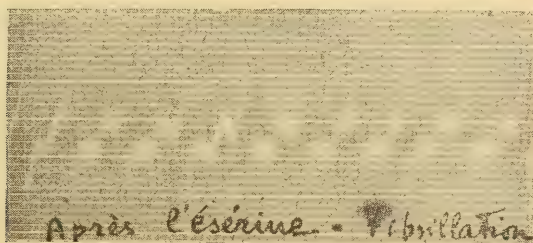 Après l'ésérine - Fibrillation